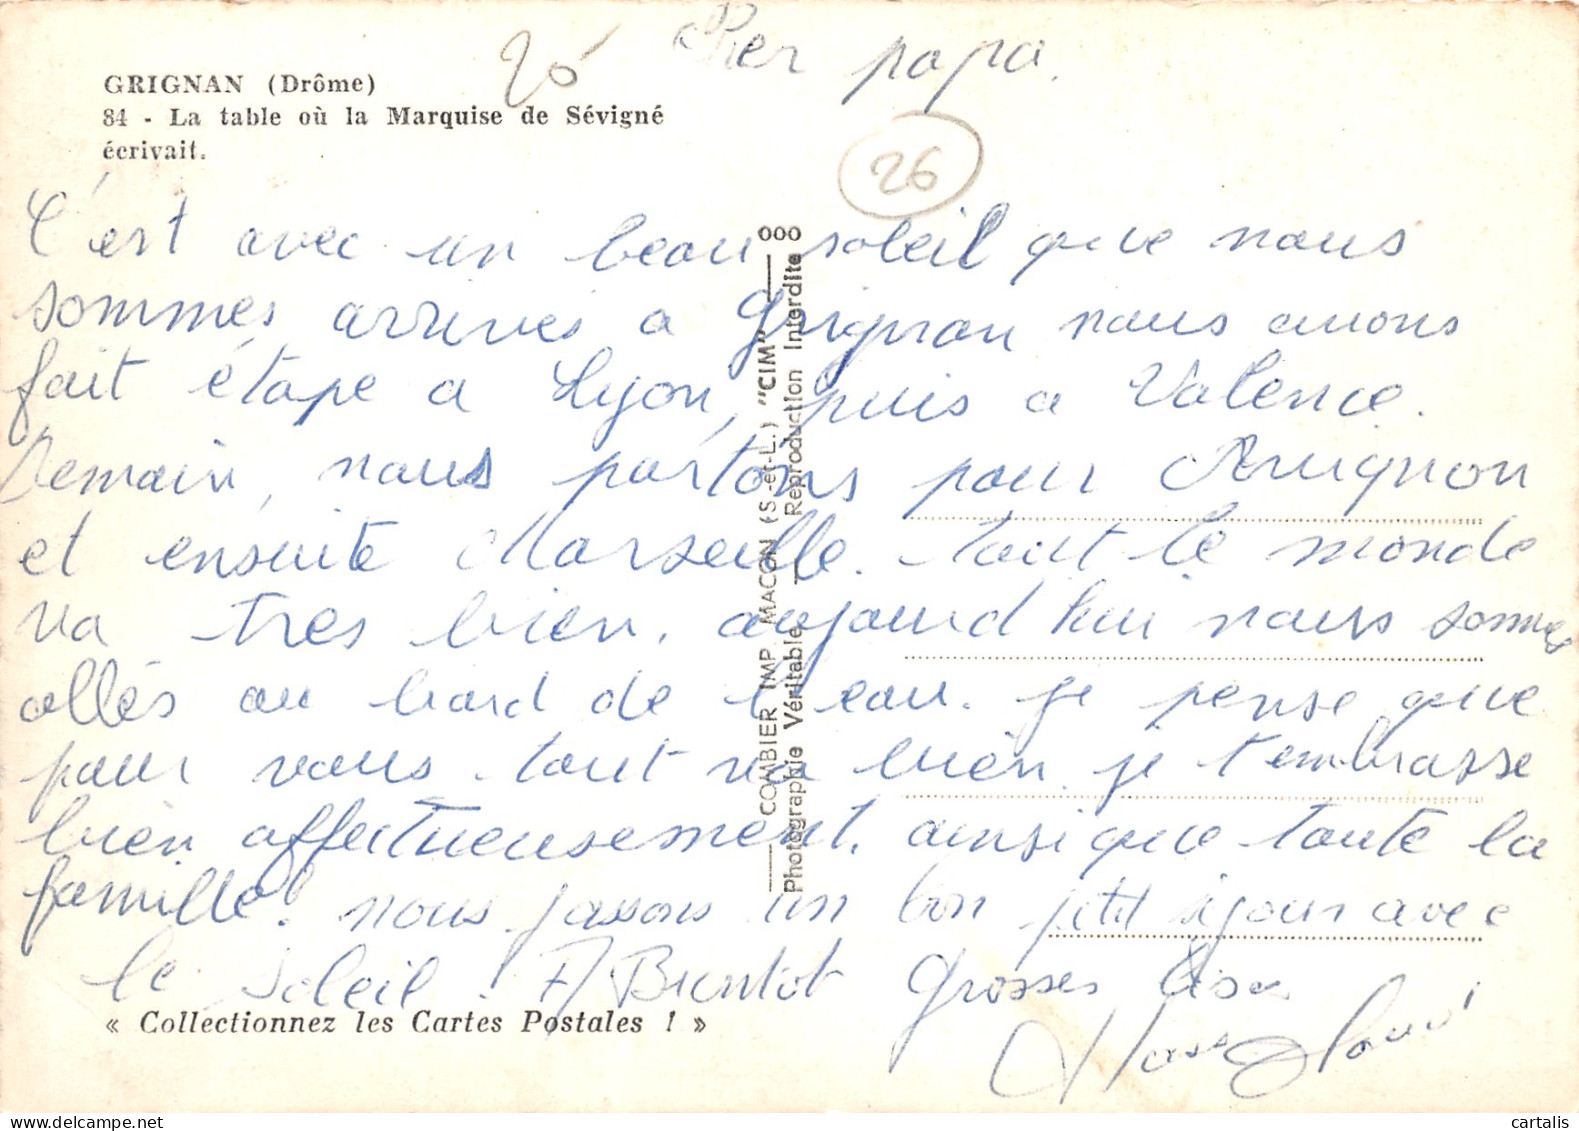 Cher papa.
20
GRIGNAN (Drôme)
84 - La table où la Marquise de Sévigné
écrivait.
26
C'est avec un beau soleil que nous
sommes arrives a Grignan nous avons
fait étape a Lyon, puis a Valence.
Demain, nous partons pour Avignon
et ensuite Marseille. tout le monde
va tres bien. aujourd hui nous sommes
allés au bord de l'eau. je pense que
pour vous tout va bien. je t'embrasse
bien affectueusement. ainsi que toute la
famille. nous passons un bon petit séjour avec
le soleil. A Bientot Grosses bises
« Collectionnez les Cartes Postales ! »
COMBIER IMP. MACON (S.-et-L.) "CIM" ooo
Photographie Véritable Reproduction Interdite
cartalis